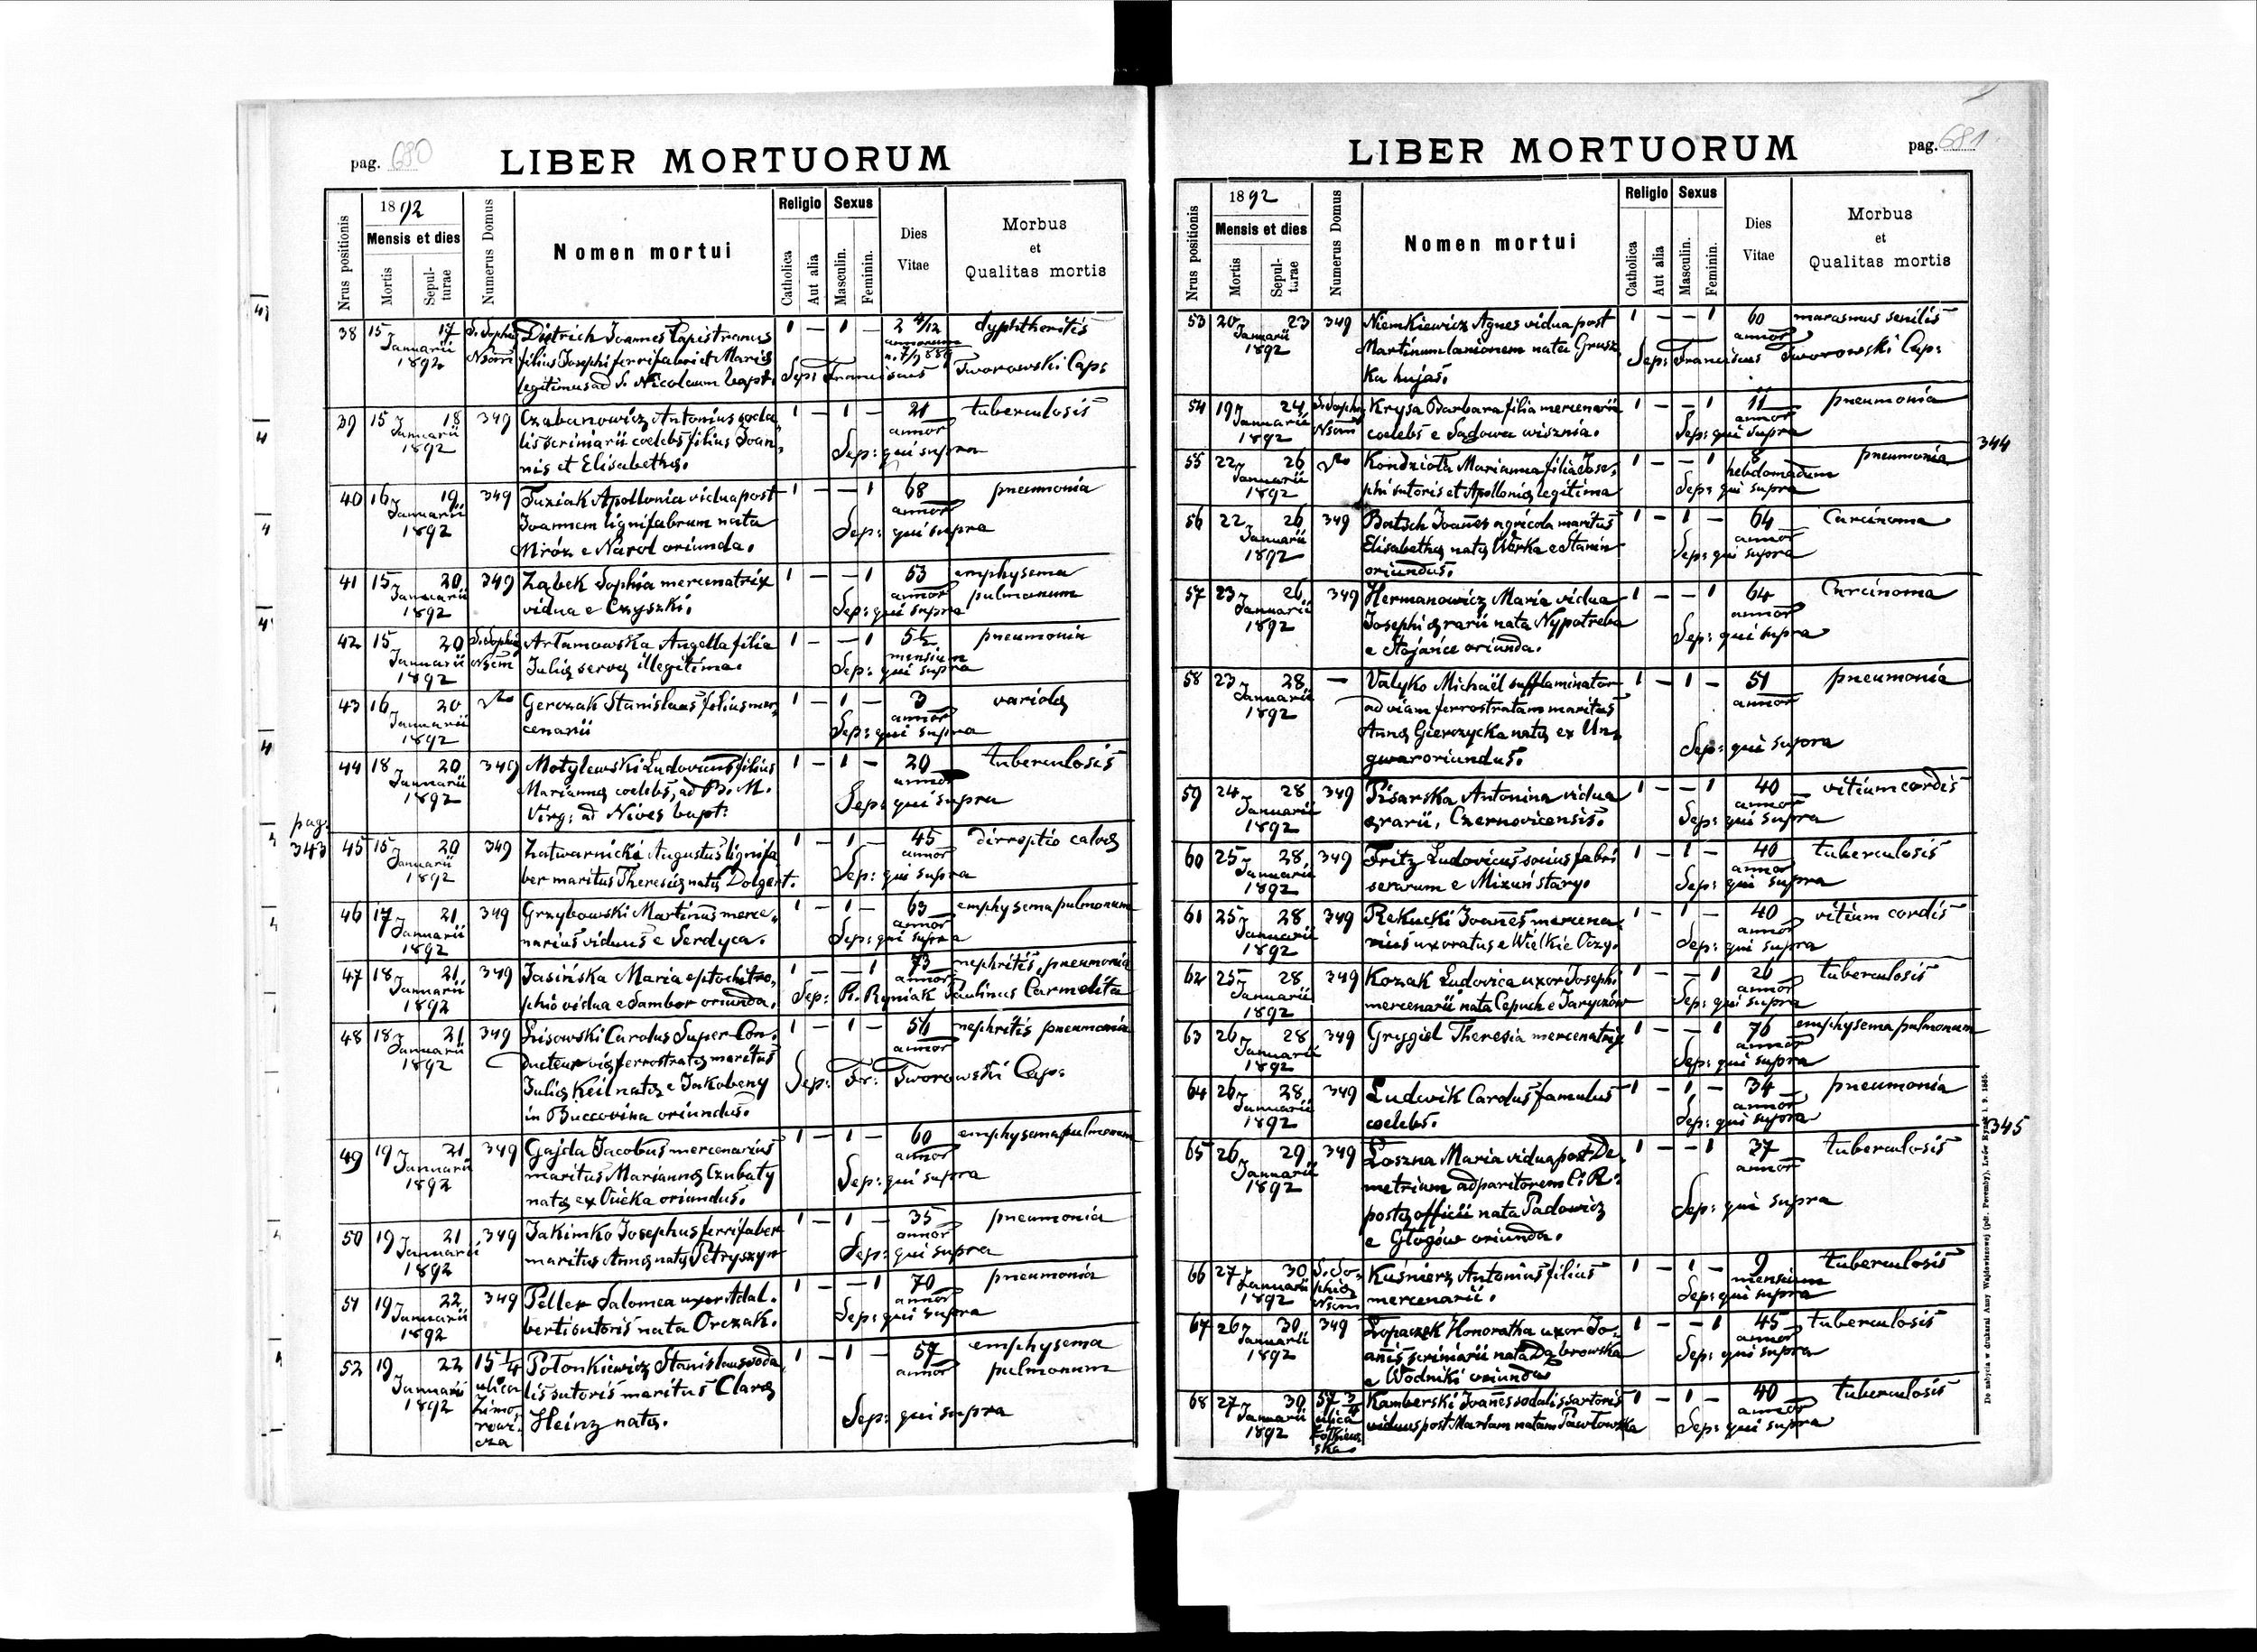 pag. 680
LIBER MORTUORUM
Nrus positionis
1892
Mensis et dies
Mortis
Sepulturae
Numerus Domus
Nomen mortui
Religio
Catholica
Aut alia
Sexus
Masculin.
Feminin.
Dies Vitae
Morbus et Qualitas mortis
38 15 17 S. Sophia Dietrich Joannes Capistranus 1 — 1 — 2 4/12 dyphtheritis
Januarii Nsom filius Josephi ferrifabri et Mariæ annorum
1892 legitimus ad S. Nicolaum bapt. Sep: Franciscus Tworowski Cap:
39 15 18 349 Czabanowicz Antonius soda 1 — 1 — 21 tuberculosis
Januarii lis scriniarii coelebs filius Joan annor
1892 nis et Elisabethæ. Sep: qui supra
40 16 19 349 Tuziak Apollonia vidua post 1 — — 1 68 pneumonia
Januarii Joannem lignifabrum nata annor
1892 Mróz e Narol oriunda. Sep: qui supra
41 15 20 349 Ząbek Sophia mercenatrix 1 — — 1 53 emphysema
Januarii vidua e Czyszki. annor pulmonum
1892 Sep: qui supra
42 15 20 S. Sophia Artamowska Angella filia 1 — — 1 5½ pneumonia
Januarii Nsom Juliæ servæ illegitima. mensium
1892 Sep: qui supra
43 16 20 Gerczak Stanislaus filius mer 1 — 1 — 3 variola
Januarii cenarii annor
1892 Sep: qui supra
44 18 20 349 Motylewski Ludovicus filius 1 — 1 — 20 tuberculosis
Januarii Mariannæ coelebs, ad B. M. annor
1892 Virg: ad Nives bapt: Sep: qui supra
pag. 343
45 15 20 349 Zatwarnicki Augustus lignifa 1 — 1 — 45 dirreptio calvæ
Januarii ber maritus Theresiæ natæ Dolgert. annor
1892 Sep: qui supra
46 17 21 349 Grzybowski Martinus merce 1 — 1 — 63 emphysema pulmonum
Januarii narius viduus e Serdyca. annor
1892 Sep: qui supra
47 18 21 349 Jasińska Maria eptochotro, 1 — — 1 73 nephritis, pneumonia
Januarii phio vidua e Sambor oriunda. annor
1892 Sep: Pr. Ryniak Paulinus Carmelita
48 18 21 349 Lisowski Carolus Super Con. 1 — 1 — 56 nephritis pneumonia
Januarii ducteur viæ ferrostratæ maritus annor
1892 Juliæ Keil natæ e Jakobeny Sep: Fr: Tworowski Cap:
in Buccovina oriundus.
49 19 21 349 Gajda Jacobus mercenarius 1 — 1 — 60 emphysema pulmonum
Januarii maritus Mariannæ Czubaty annor
1892 natæ ex Oucka oriundus. Sep: qui supra
50 19 21 349 Jakimko Josephus ferrifaber 1 — 1 — 35 pneumonia
Januarii maritus Annæ natæ Petryszyn annor
1892 Sep: qui supra
51 19 22 349 Peller Salomea uxor Adal. 1 — — 1 70 pneumonia
Januarii berti sutoris nata Orczak. annor
1892 Sep: qui supra
52 19 22 15¼ Połonkiewicz Stanislaus soda 1 — 1 — 57 emphysema
Januarii ulica lis sutoris maritus Claræ annor pulmonum
1892 Zimo Heinz natæ. Sep: qui supra
rowi
cza
LIBER MORTUORUM
pag. 681
Nrus positionis
1892
Mensis et dies
Mortis
Sepulturae
Numerus Domus
Nomen mortui
Religio
Catholica
Aut alia
Sexus
Masculin.
Feminin.
Dies Vitae
Morbus et Qualitas mortis
53 20 23 349 Niemkiewicz Agnes vidua post 1 — — 1 60 marasmus senilis
Januarii Martinum lanionem nata Grusz annor
1892 ka hujas. Sep: Franciscus Tworowski Cap:
54 19 24 S. Sophia Krysa Barbara filia mercenarii 1 — — 1 11 pneumonia
Januarii Nsom coelebs e Sądowa wisznia. annor
1892 Sep: qui supra
344
55 22 26 Kondzioła Marianna filia Jose, 1 — — 1 8 pneumonia
Januarii phi sutoris et Apolloniæ legitima hebdomadum
1892 Sep: qui supra
56 22 26 349 Batsch Joañes agricola maritus 1 — 1 — 64 Carcinoma
Januarii Elisabethæ natæ Werka e Stanin annor
1892 oriundus. Sep: qui supra
57 23 26 349 Hermanowicz Maria vidua 1 — — 1 64 Carcinoma
Januarii Josephi ærarii nata Nypotreba annor
1892 e Stojańce oriunda. Sep: qui supra
58 23 28 — Valyko Michaël sufflaminator 1 — 1 — 51 pneumonia
Januarii ad viam ferrostratam maritus annor
1892 Annæ Gierczycka natæ ex Un,
gwar oriundus. Sep: qui supra
59 24 28 349 Pisarska Antonina vidua 1 — — 1 40 vitium cordis
Januarii ærarii, Czernovicensis. annor
1892 Sep: qui supra
60 25 28 349 Fritz Ludovicus socius fabri 1 — 1 — 40 tuberculosis
Januarii serarum e Mizuń stary. annor
1892 Sep: qui supra
61 25 28 349 Rekucki Joañes mercena 1 — 1 — 40 vitium cordis
Januarii rius uxoratus e Wielkie Oczy. annor
1892 Sep: qui supra
62 25 28 349 Kozak Ludovica uxor Josephi 1 — — 1 26 tuberculosis
Januarii mercenarii nata Capuch e Jaryczów annor
1892 Sep: qui supra
63 26 28 349 Grygiel Theresia mercenatrix 1 — — 1 76 emphysema pulmonum
Januarii annor
1892 Sep: qui supra
64 26 28 349 Ludwik Carolus famulus 1 — 1 — 34 pneumonia
Januarii coelebs. annor
1892 Sep: qui supra
345
65 26 29 349 Łoszna Maria vidua post De 1 — — 1 37 tuberculosis
Januarii metrium adparitorem C. R. annor
1892 postæ officii nata Padowicz Sep: qui supra
e Głogów oriunda.
66 27 30 S. So, Kuśnierz Antonius filius 1 — 1 — 9 tuberculosis
Januarii phia mercenarii. mensium
1892 Nsom Sep: qui supra
67 26 30 349 Łopaczek Honoratha uxor Jo 1 — — 1 45 tuberculosis
Januarii anis scriniarii nata Dąbrowska annor
1892 e Wodniki oriunda Sep: qui supra
68 27 30 57¾ Kamberski Joañes sodalis sartoris 1 — 1 — 40 tuberculosis
Januarii ulica viduus post Martam natam Pawłowska annor
1892 Żółkiew Sep: qui supra
ska
Do nabycia w drukarni Anny Wajdowiczowej (pdt. Poremby), Lwów Rynek l. 9. 1885.